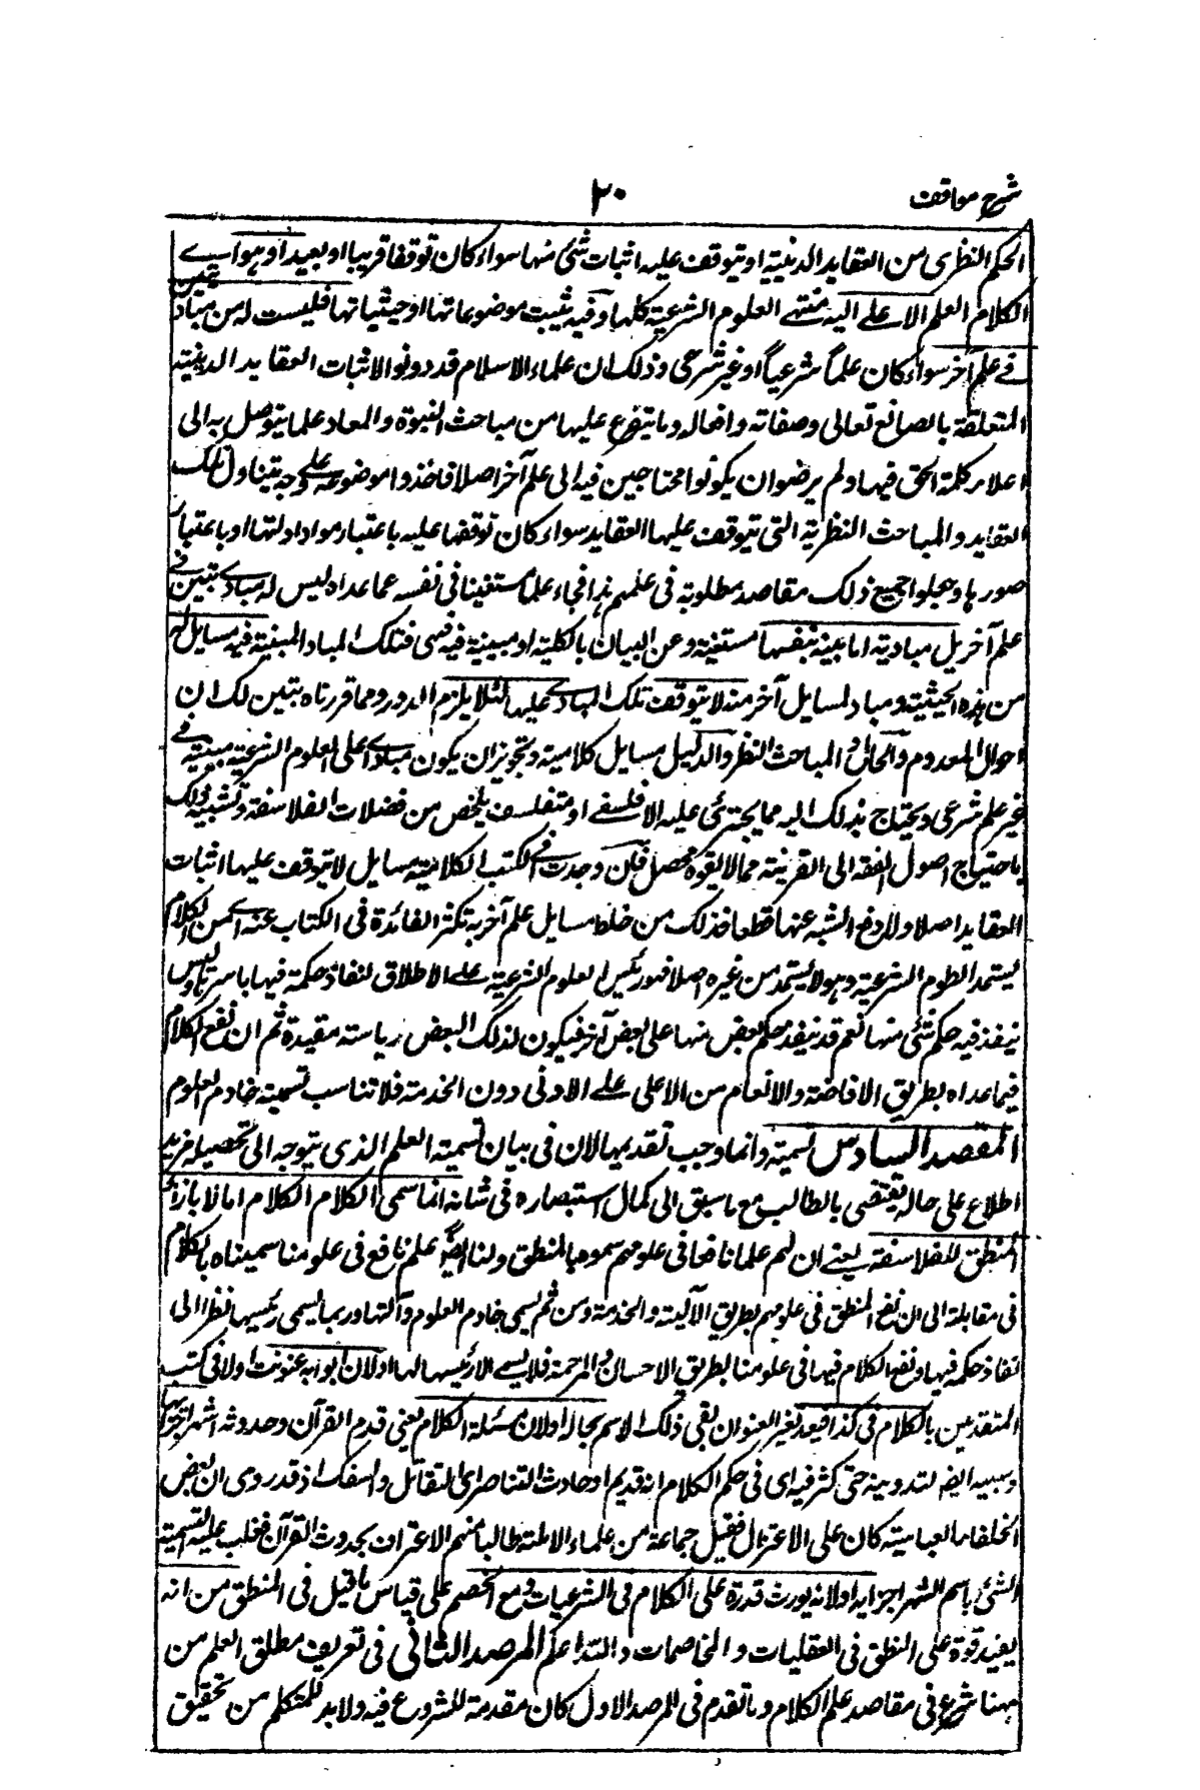 شرح مواقف
٢٠
الحكم النظرى من العقايد الدينية او يتوقف عليه اثبات شئ منها سواء كان توقفا قريبا او بعيدا و هو اے
الكلام العلم الاعلے اليه تنتهے العلوم الشرعية كلها و فيه تثبت موضوعاتها او حيثياتها فليست له مباد تبين
فے علم آخر سواء كان علماً شرعياً او غير شرعى و ذلك ان علماء الاسلام قد دونوا لاثبات العقايد الدينية
المتعلقة بالصانع تعالى و صفاته و افعاله و ما يتفرع عليها من مباحث النبوة و المعاد علما يتوصل به الى
اعلاء كلمة الحق فيها و لم يرضوا ان يكونوا محتاجين فيه الى علم آخر اصلا فاخذوا موضوعه علے وجه يتناول تلك
العقايد و المباحث النظرية التى يتوقف عليها العقايد سواء كان توقفها عليه باعتبار مواد ادلتها او باعتبار
صورها و جعلوا جميع ذلك مقاصد مطلوبة فى علمهم هذا فجاء علماً مستغنيا فى نفسه عما عداه ليس له مبادے تبين فے
علم آخر بل مبادية اما بينة بنفسها مستغنية و عن البيان بالكلية او مبينة فيه فهى فتلك المباد المبنية فيه مسايل له
من هذه الحيثية و مباد لمسايل آخر منه لا يتوقف تلك المبادے عليها لئلا يلزم الدور و مما قررناه يتبين لك ان
احوال المعدوم و الحال و المباحث النظر و الدليل مسايل كلامية و تجويز ان يكون مبادے اعلى العلوم الشرعية مبينة فے
غير علم شرعى و يحتاج بذلك اليه مما يجترئ عليه الا فلسفے او متفلسف يلحس من فضلات الفلاسفة و تشبيه ذلك
باحتياج اصول الفقه الى العربية مما لا يفوه به محصل فان وجدت فے الكتب الكلامية مسايل لا يتوقف عليها اثبات
العقايد اصلا و لا دفع الشبه عنها قطعا فذلك من خلط مسايل علم آخر به تكثر الفائدة فى الكتاب عنه اے من الكلام
يستمد العلوم الشرعية و هو لا يستمد من غيره اصلا فهو رئيس العلوم الشرعية علے الاطلاق لنفاذ حكمة فيها باسرها و ليس
ينفذ فيه حكم شئى منها نعم قد ينفذ حكم بعض منها على بعض آخر فيكون لذلك البعض رياسته مقيدة ثم ان نفع الكلام
فيما عداه بطريق الافاضة و الانعام من الاعلى علے الادنى دون الخدمة فلا تناسب تسمية خادم العلوم
المقصد السادس تسميته و انما وجب تقديمها لان فى بيان تسمية العلم الذى يتوجه الى تحصيله مزيد
اطلاع على حاله يفضى بالطالب مع ما سبق الى كمال استبصاره فى شانه انما سمى الكلام الكلام اما لا بازاء
المنطق للفلاسفة يعنے ان لهم علما نافعا فى علومهم سموه بالمنطق و لنا ايضا علم نافع فى علومنا سميناه بالكلام
فى مقابلة الى ان نفع المنطق فى علومهم بطريق الآلية و الخدمة و من ثم يسمى خادم العلوم و آلتها و ربما يسمى رئيسها نظرا الى
نفاذ حكمه فيها و نفع الكلام فيها فى علومنا بطريق الاحسان و المرحمة فلا يسمے الا رئيسها لها او لان ابوابه عنونت اولا فى كتب
المتقدمين بالكلام فى كذا فبعد تغير العنوان بقى ذلك الاسم بحاله او لان مسئلة الكلام يعنى قدم القرآن و حدوثه اشهر اجزائها
و سببه ايضه لتدوينه حتى كثر فيه اى فى حكم الكلام انه قديم او حادث التناصر اى التقاتل و السفك اذ قد روى ان بعض
الخلفاء العباسية كان على الاعتزال فقتل جماعة من علماء الامة طالبا منهم الاعتراف بحدوث القرآن فغلب عليه التسمية
الشئى باسم اشهر اجزايه او لانه يورث قدرة على الكلام فى الشرعيات و مع الخصم على قياس ما قيل فى المنطق من انه
يفيد قوة على النطق فى العقليات و المخاصمات و الله اعلم المرصد الثانى فى تعريف مطلق العلم من
ههنا شرع فى مقاصد علم الكلام و ما تقدم فى المرصد الاول كان مقدمة للشروع فيه و لابد للمتكلم من تحقيق